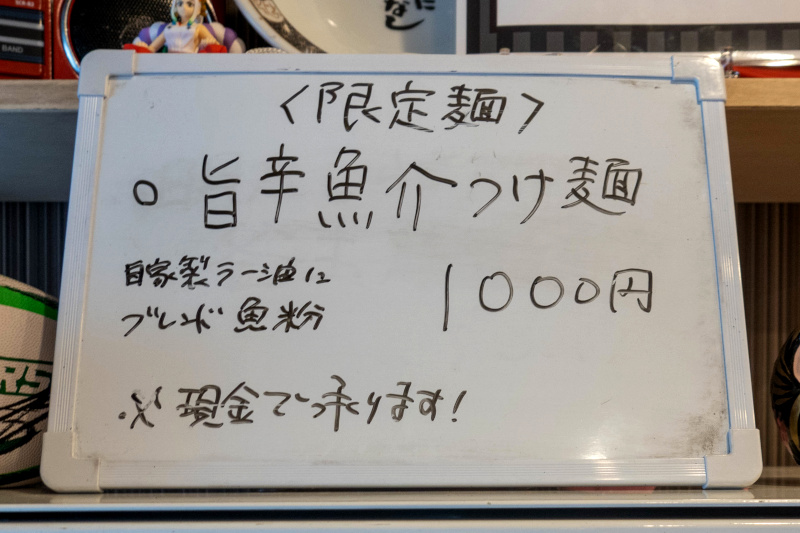 BAND
なし
〈限定麺〉
○ 旨辛魚介つけ麺
自家製ラー油に
ブレンド魚粉
1000円
※現金で承ります!
RS